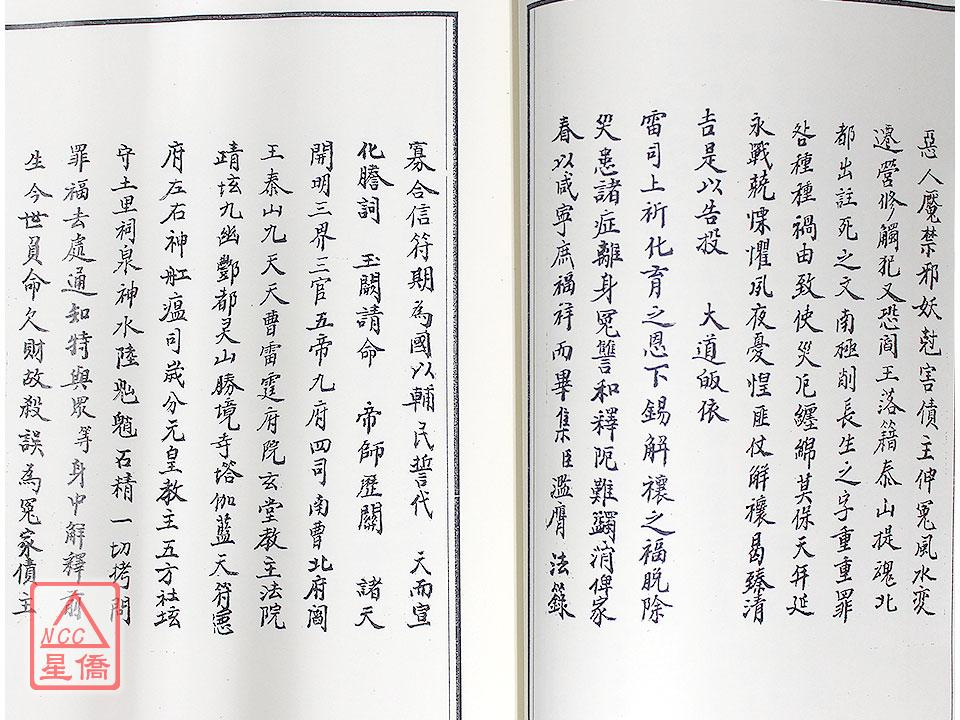 惡人魘禁邪妖尅害債主伸冤風水変
遷營修觸犯又恐閻王落籍泰山提魂北
都出註死之文南極削長生之字重重罪
咎種種禍由致使災厄纏綿莫保天年延
永戰兢慄懼夙夜憂惶匪仗解禳曷臻清
吉是以告投　大道皈依
雷司上祈化育之恩下錫解禳之福脫除
災患諸症離身冤讐和釋阨難蠲消俾家
春以咸寧庶福祥而畢集臣濫膺法籙
寡合信符期為國以輔民誓代　天而宣
化謄詞　玉闕請命　帝師歷關　諸天
開明三界三官五帝九府四司南曹北府閫
王泰山九天天曹雷霆府院玄堂教主法院
靖垓九幽酆都灵山勝境寺塔伽藍天符憲
府左右神舡瘟司歲分元皇教主五方社坛
守土里祠泉神水陸魈石精一切拷問
罪福去處通知特與眾等身中解釋前
生今世負命欠財故殺誤為冤家債主
NCC
星僑